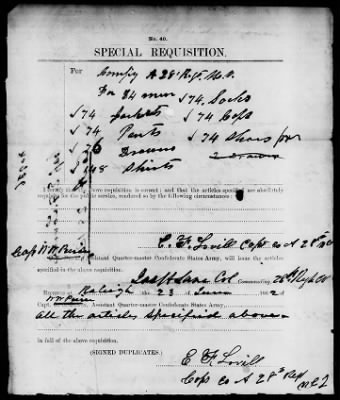 No. 40.
SPECIAL REQUISITION.
For Company A 28 Regt N.C.
For 84 men √74 Socks
√74 Jackets √74 Caps
√74 Pants √74 Shoes prs
√76 Drawers
√148 Shirts
I certify the above requisition is correct; and that the articles specified are absolutely
requisite for the public service, rendered so by the following circumstances:
E. F. Lovill Capt co A 28
Capt
Assistant Quarter-master Confederate States Army, will issue the articles
specified in the above requisition.
Jas H Lane Col Commanding 28th Regt
Received at Raleigh the 23 of 1862 of
Capt. Assistant Quarter-master Confederate States Army,
all the articles specified above
in full of the above requisition.
(SIGNED DUPLICATES.)
E F Lovill
Capt co A 28th Regt